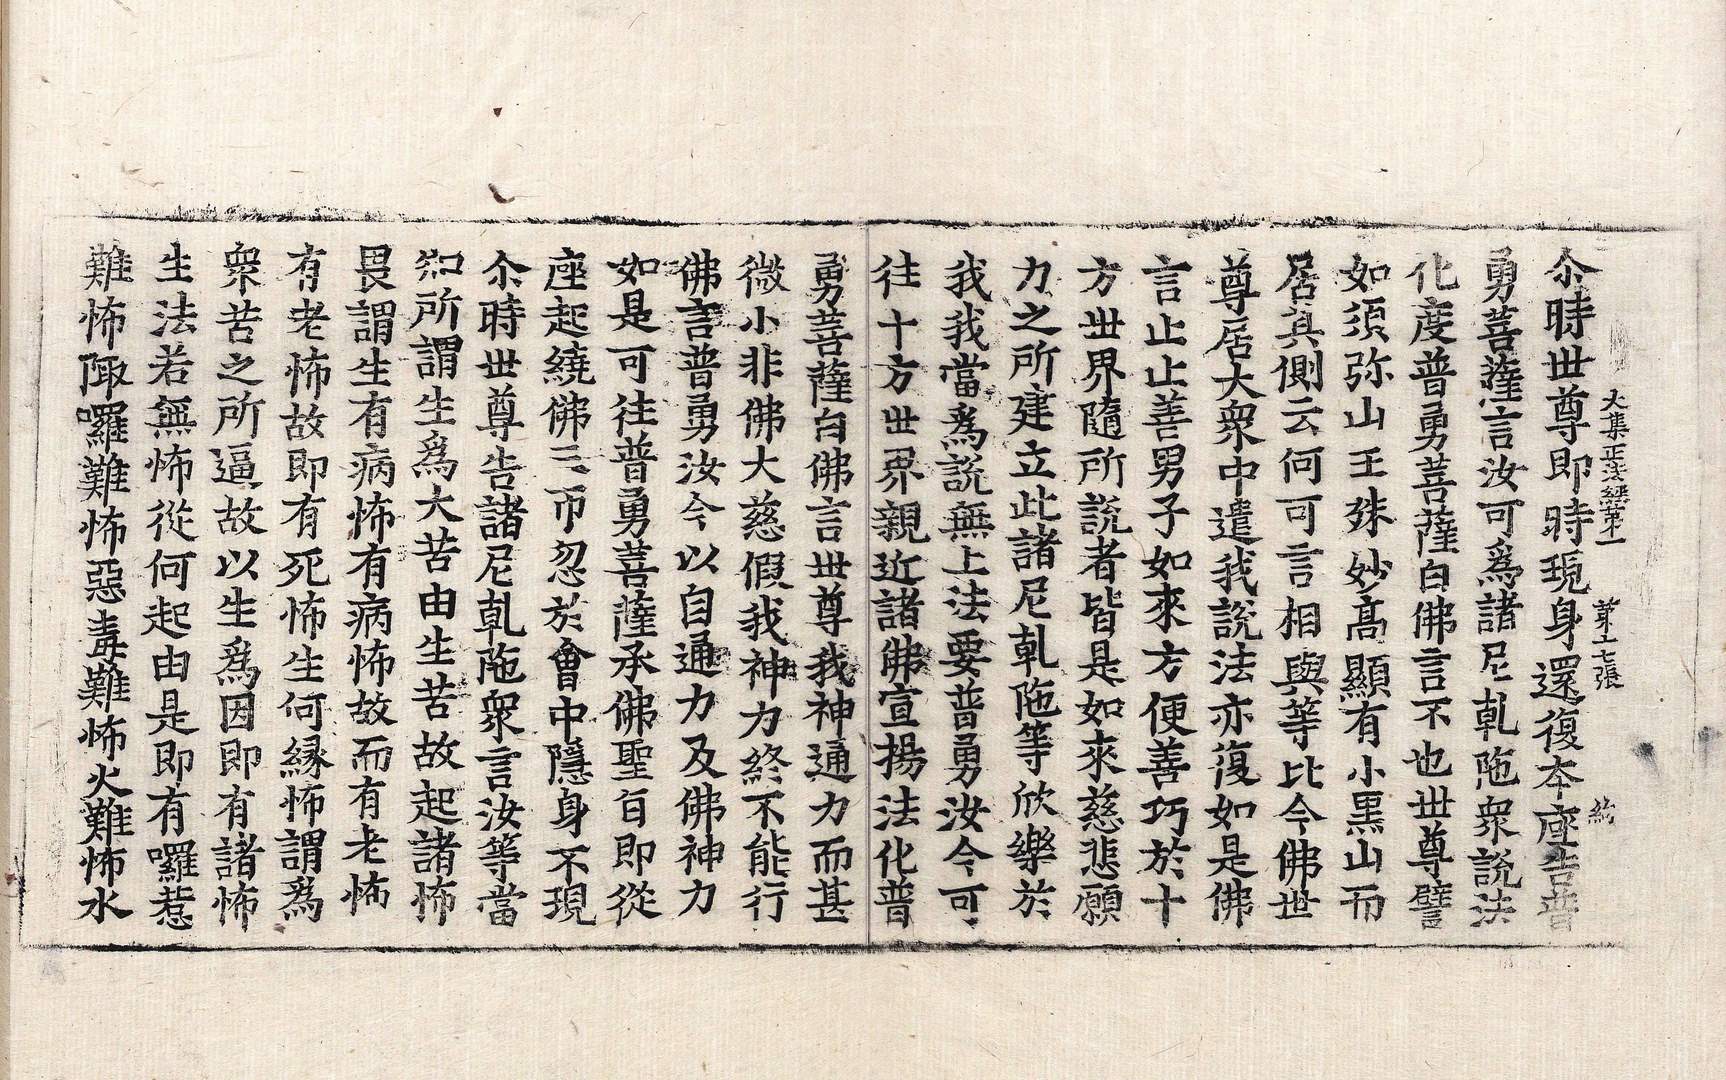 大集正法經第二 第十七張 約
尒時世尊即時現身還復本座告普
勇菩薩言汝可爲諸尼乹陁衆說法
化度普勇菩薩白佛言不也世尊譬
如須弥山王殊妙高顯有小黒山而
居其側云何可言相與等比今佛世
尊居大衆中遣我說法亦復如是佛
言止止善男子如來方便善巧於十
方世界隨所說者皆是如來慈悲願
力之所建立此諸尼乹陁等欣樂於
我我當爲說無上法要普勇汝今可
往十方世界親近諸佛宣揚法化普
勇菩薩白佛言世尊我神通力而甚
微小非佛大慈假我神力終不能行
佛言普勇汝今以自通力及佛神力
如是可往普勇菩薩承佛聖旨即從
座起繞佛三帀忽於會中隱身不現
尒時世尊告諸尼乹陁衆言汝等當
知所謂生爲大苦由生苦故起諸怖
畏謂生有病怖有病怖故而有老怖
有老怖故即有死怖生何縁怖謂爲
衆苦之所逼故以生爲因即有諸怖
生法若無怖從何起由是即有囉惹
難怖陬囉難怖惡毒難怖火難怖水